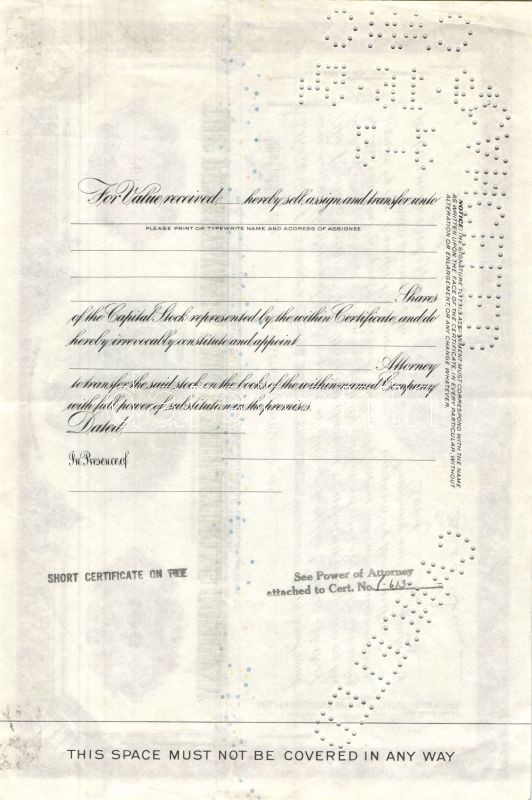 For Value received, hereby sell, assign and transfer unto
PLEASE PRINT OR TYPEWRITE NAME AND ADDRESS OF ASSIGNEE
Shares
of the Capital Stock represented by the within Certificate, and do
hereby irrevocably constitute and appoint
Attorney
to transfer the said stock on the books of the within-named Company
with full power of substitution in the premises.
Dated,
In Presence of
NOTICE: THE SIGNATURE TO THIS ASSIGNMENT MUST CORRESPOND WITH THE NAME
AS WRITTEN UPON THE FACE OF THE CERTIFICATE, IN EVERY PARTICULAR, WITHOUT
ALTERATION OR ENLARGEMENT, OR ANY CHANGE WHATEVER.
SHORT CERTIFICATE ON FILE
See Power of Attorney
attached to Cert. No.
THIS SPACE MUST NOT BE COVERED IN ANY WAY